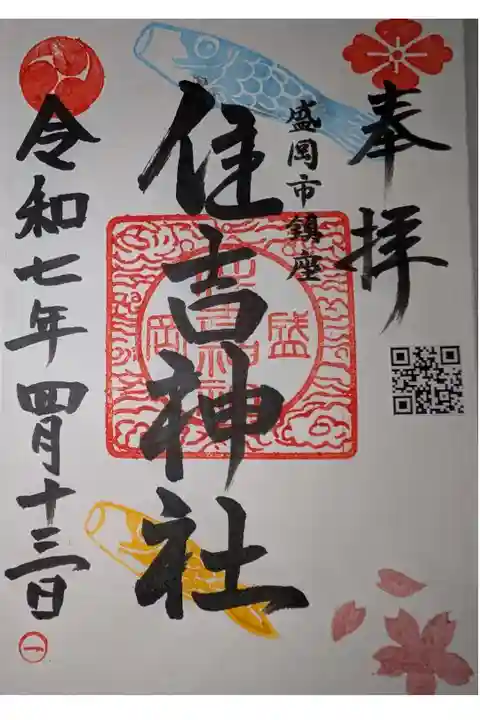 奉拝
盛岡市鎮座
住吉神社
盛岡
令和七年四月十三日
一